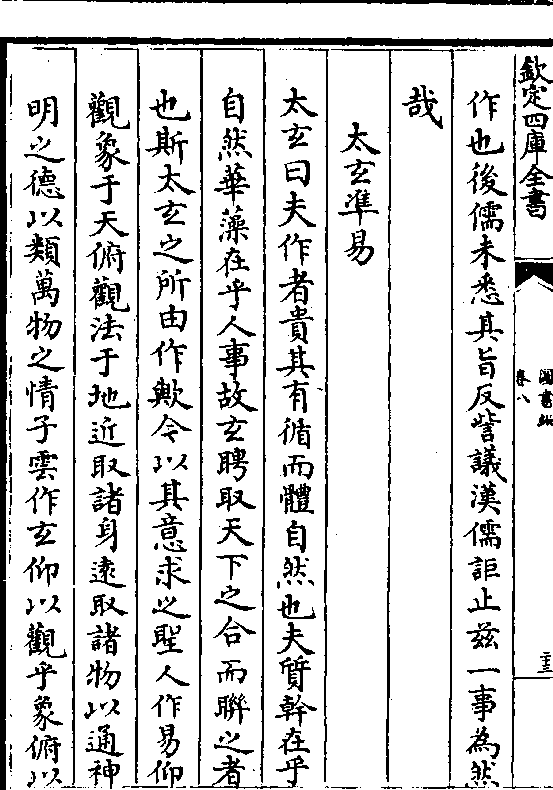 欽定四庫全書
圖書編
卷八
作也後儒未悉其旨反訾議漢儒詎止兹一事為然
哉
太玄準易
太玄曰夫作者貴其有循而體自然也夫質幹在乎
自然華藻在乎人事故玄聘取天下之合而聨之者
也斯太玄之所由作歟今以其意求之聖人作易仰
觀象于天俯觀法于地近取諸身遠取諸物以通神
明之德以類萬物之情子雲作玄仰以觀乎象俯以